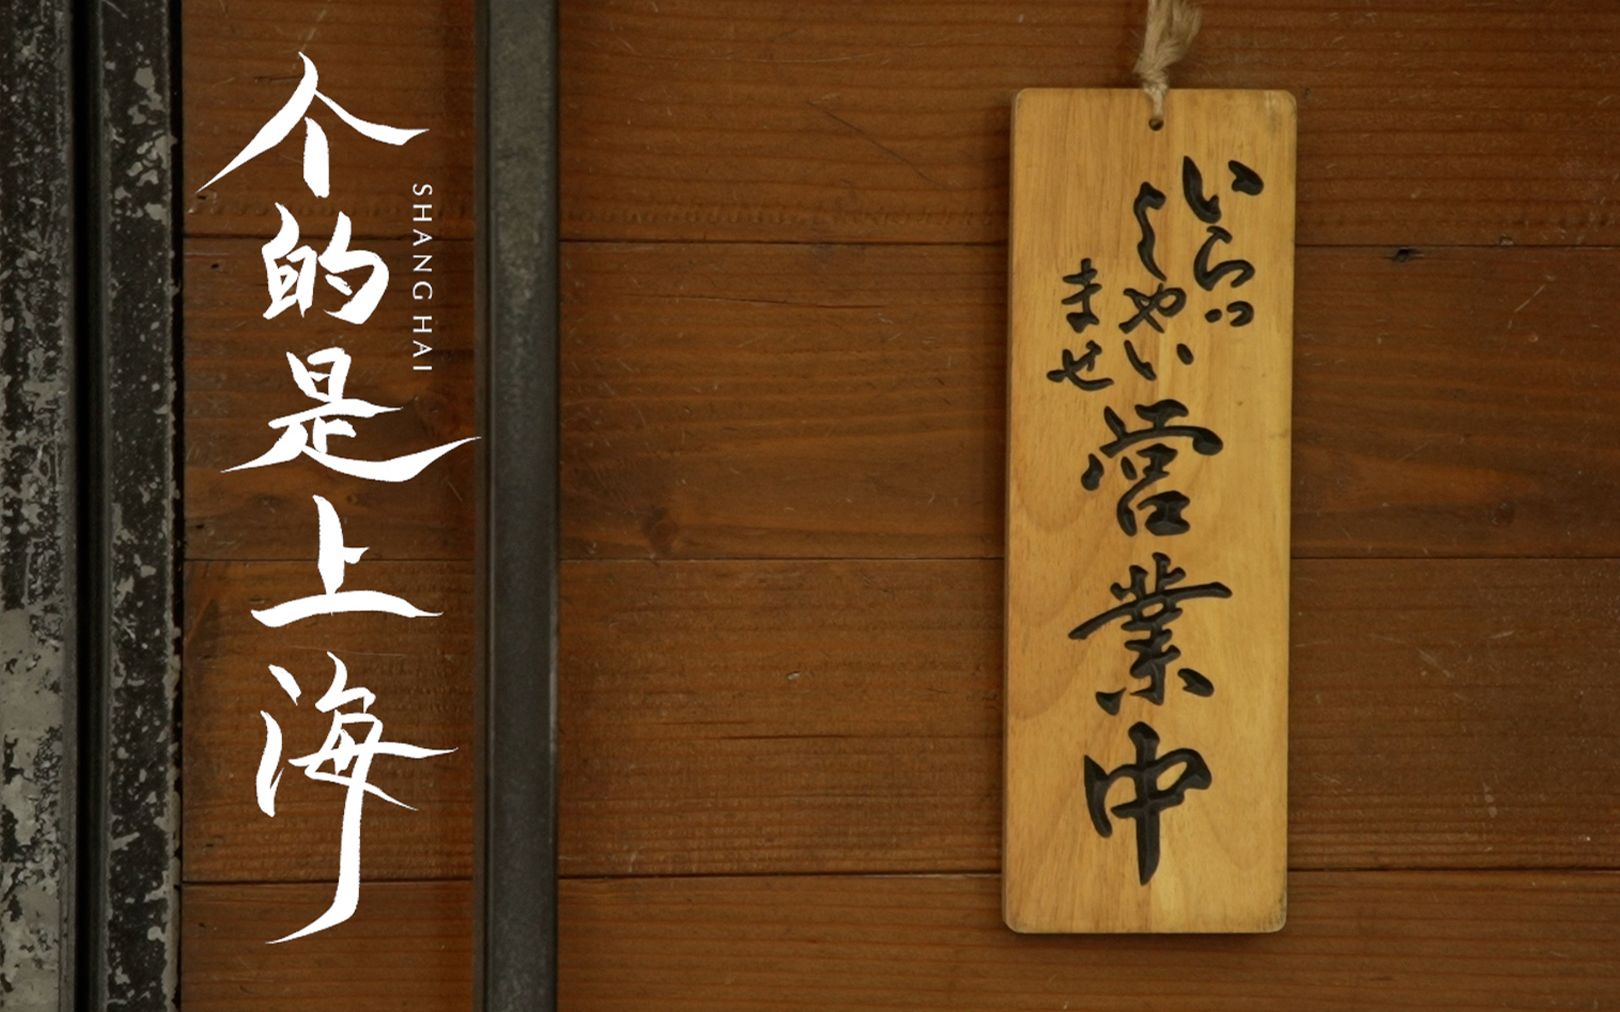 个的是上海
SHANGHAI
いらっ
しゃい
ませ
営業中